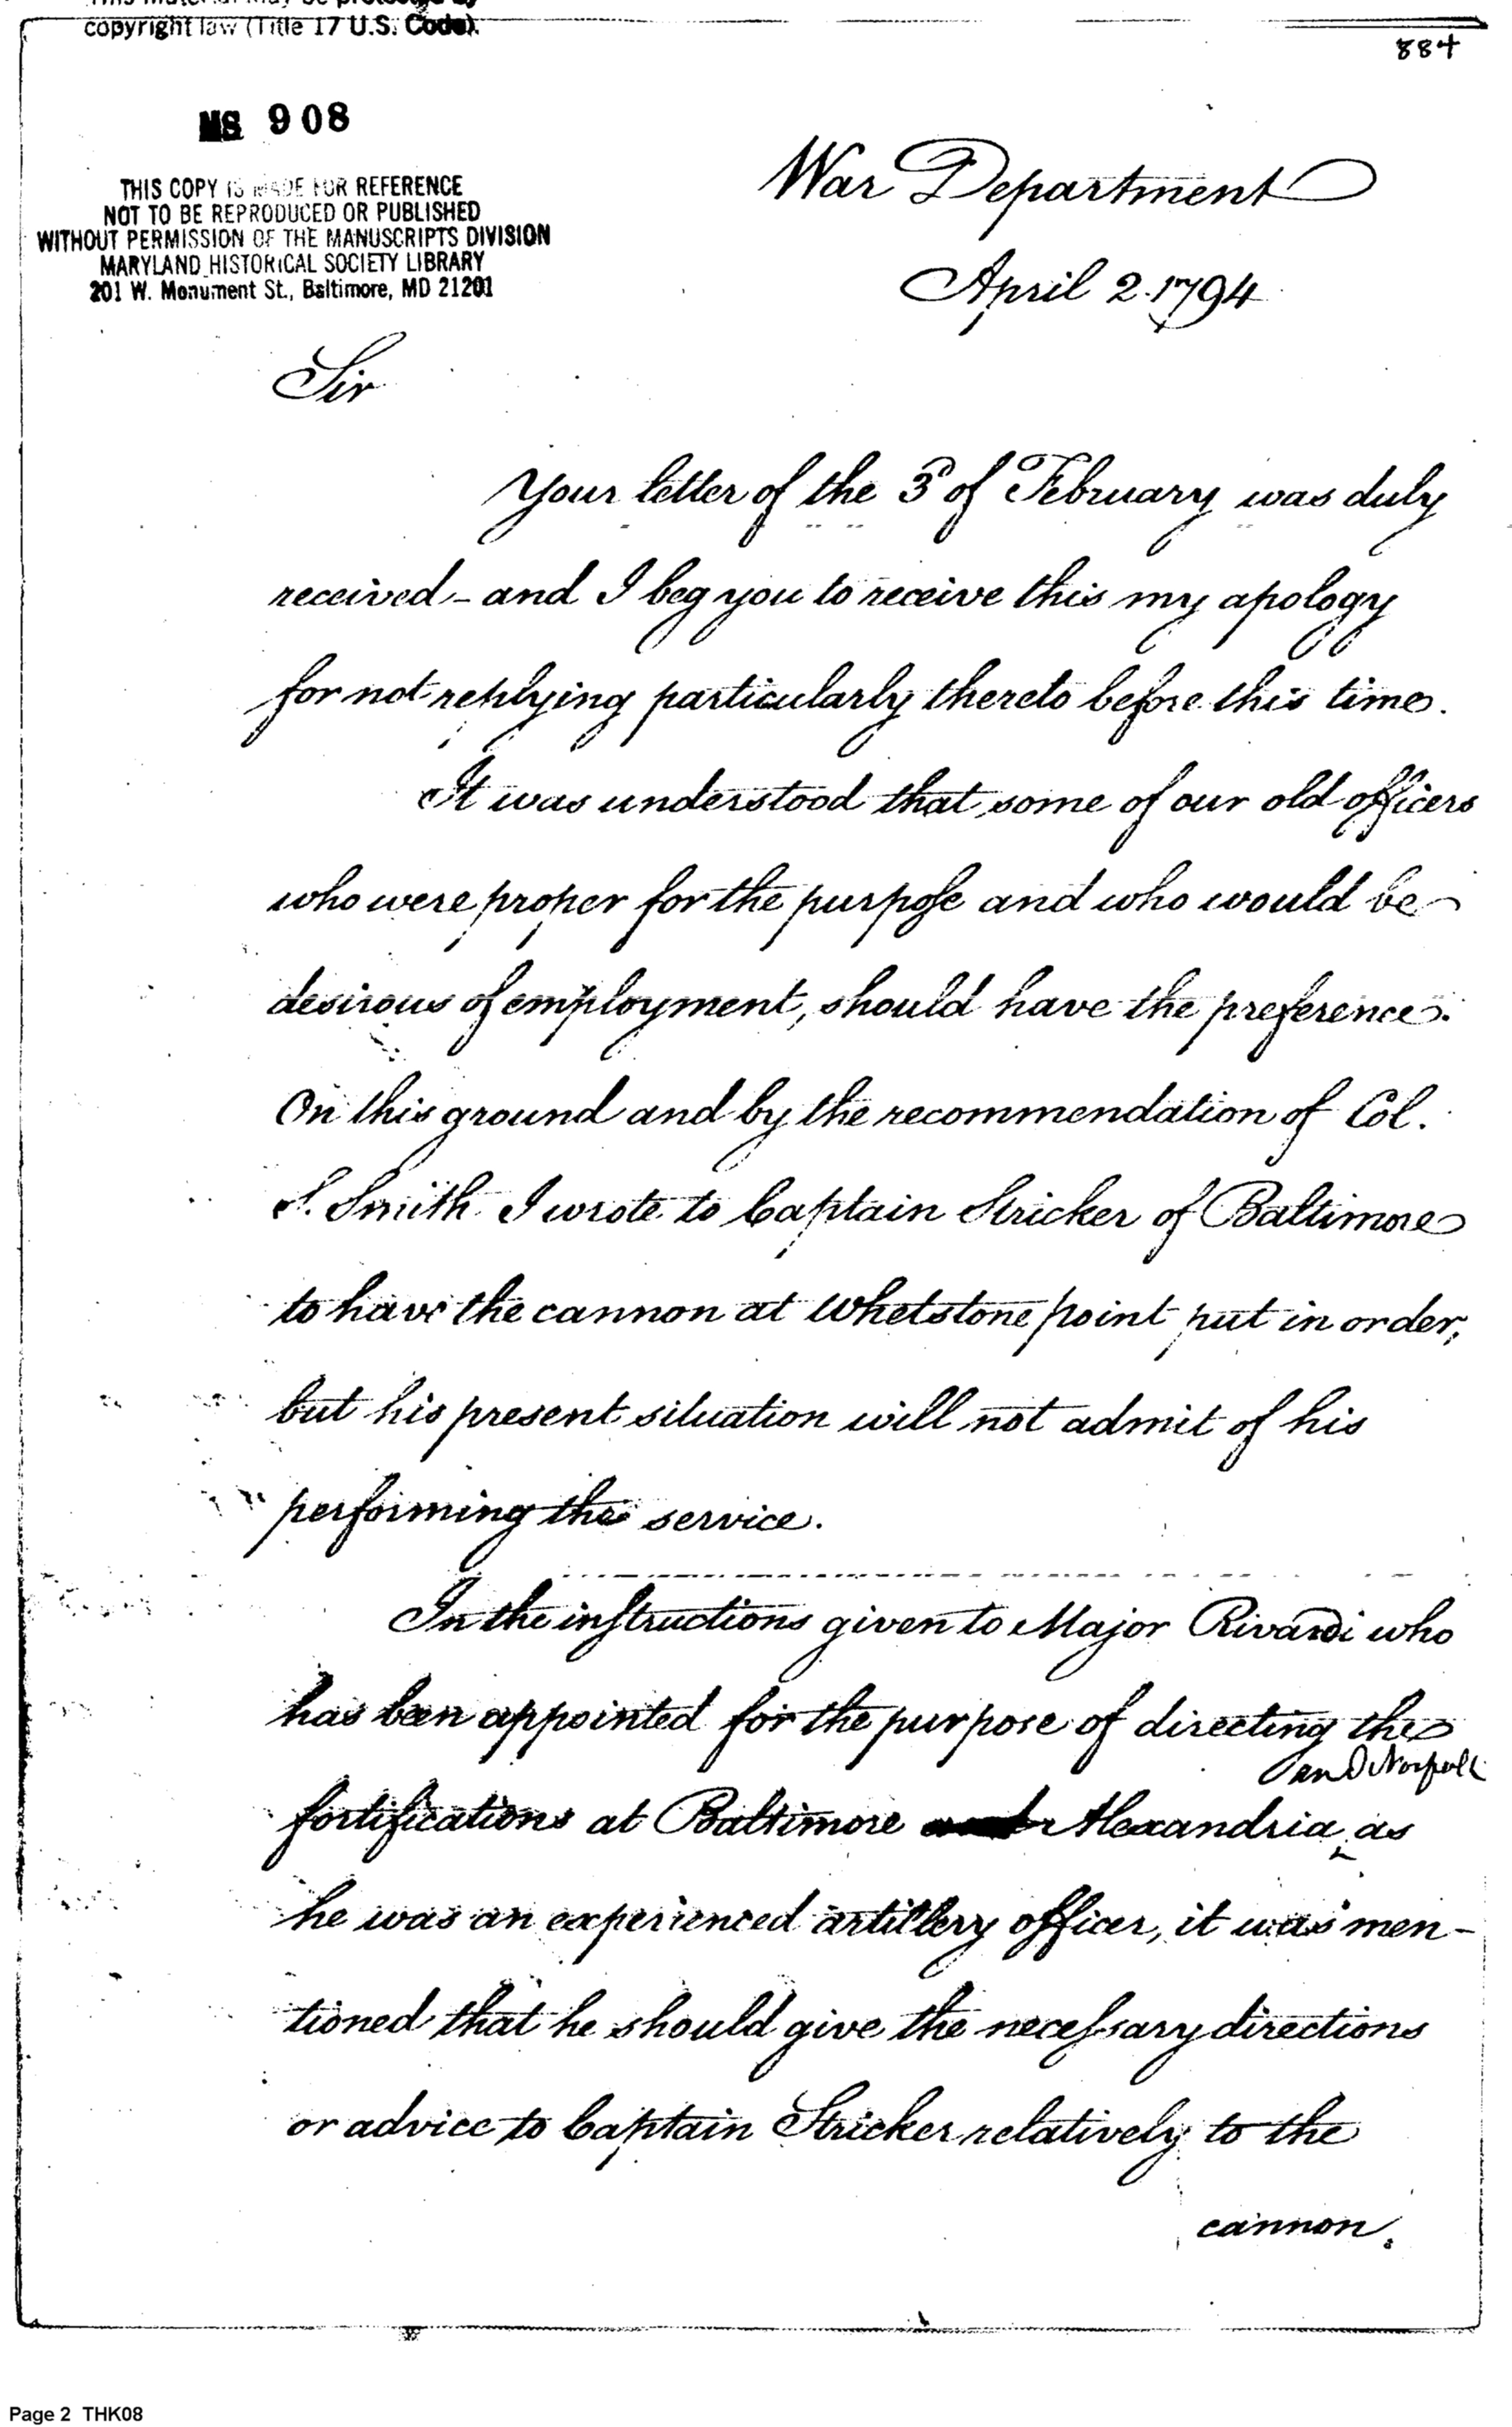 This material may be protected by
copyright law (Title 17 U.S. Code).
884
MS 908
THIS COPY IS MADE FOR REFERENCE
NOT TO BE REPRODUCED OR PUBLISHED
WITHOUT PERMISSION OF THE MANUSCRIPTS DIVISION
MARYLAND HISTORICAL SOCIETY LIBRARY
201 W. Monument St., Baltimore, MD 21201
War Department
April 2. 1794
Sir
Your letter of the 3d of February was duly
received - and I beg you to receive this my apology
for not replying particularly thereto before this time.
It was understood that some of our old officers
who were proper for the purpose and who would be
desirous of employment, should have the preference.
On this ground and by the recommendation of Col.
S. Smith I wrote to Captain Stricker of Baltimore
to have the cannon at Whetstone point put in order,
but his present situation will not admit of his
performing the service.
In the instructions given to Major Rivardi who
has been appointed for the purpose of directing the
and Norfolk
fortifications at Baltimore Alexandria as
he was an experienced artillery officer, it was men-
tioned that he should give the necessary directions
or advice to Captain Stricker relatively to the
cannon.
Page 2 THK08